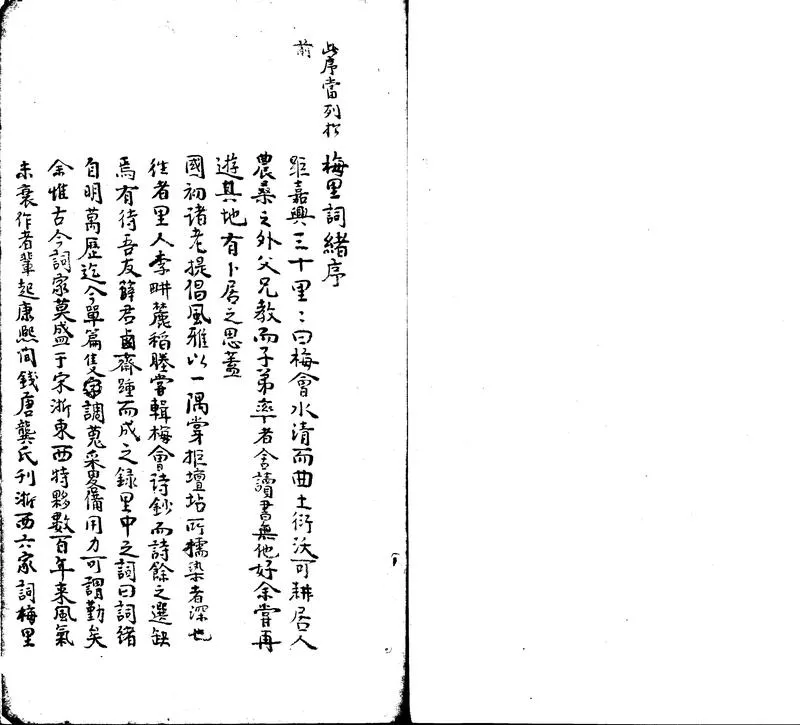 此序當列於
前
梅里詞緒序
距嘉興三十里里曰梅會水清而曲土衍沃可耕居人
農桑之外父兄教而子弟率者舍讀書無他好余嘗再
遊其地有卜居之思蓋
國初诸老提倡風雅以一隅掌拒壇坫所擩染者深也
徃者里人李畊麓稻塍嘗輯梅會诗鈔而詩餘之選缺
焉有待吾友薛君鹵齋踵而成之録里中之詞曰詞緒
自明萬歷迄今單篇隻調蒐采畧備用力可謂勤矣
余惟古今詞家莫盛于宋浙東西特夥數百年来風氣
未衰作者輩起康熙间錢唐龔氏刊浙西六家詞梅里